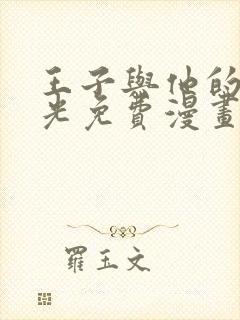 王子與他的
光免費漫畫
羅玉文